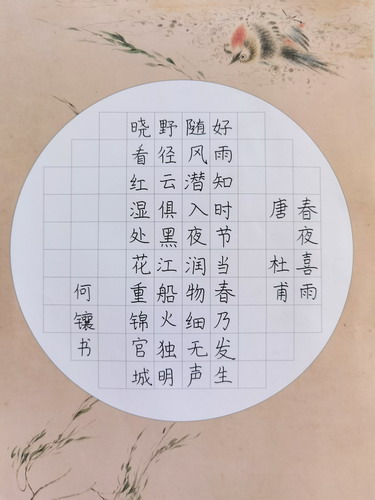 春夜喜雨
唐 杜甫
好雨知时节当春乃发生
随风潜入夜润物细无声
野径云俱黑江船火独明
晓看红湿处花重锦官城
何镶书